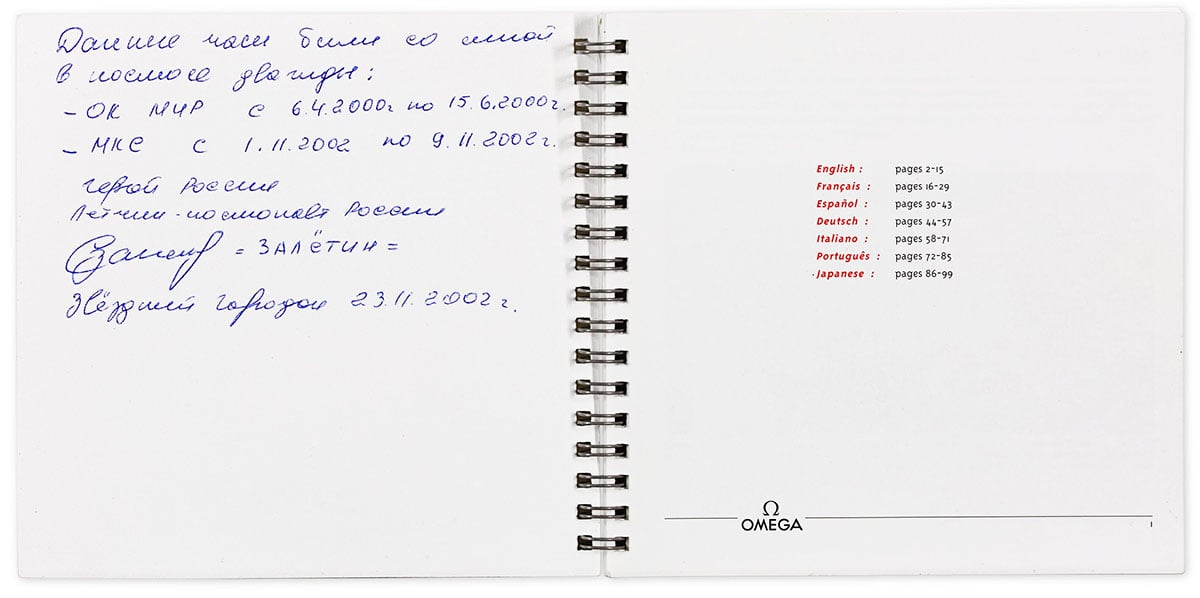 Данные часы были со мной
в космосе дважды:
- ОК МИР с 6.4.2000г по 15.6.2000г.
- МКС с 1.11.2002 по 9.11.2002г.
герой России
Летчик-космонавт России
= ЗАЛЁТИН =
Звёздный городок 23.11.2002г.
English : pages 2-15
Français : pages 16-29
Español : pages 30-43
Deutsch : pages 44-57
Italiano : pages 58-71
Português : pages 72-85
Japanese : pages 86-99
Ω
OMEGA
1